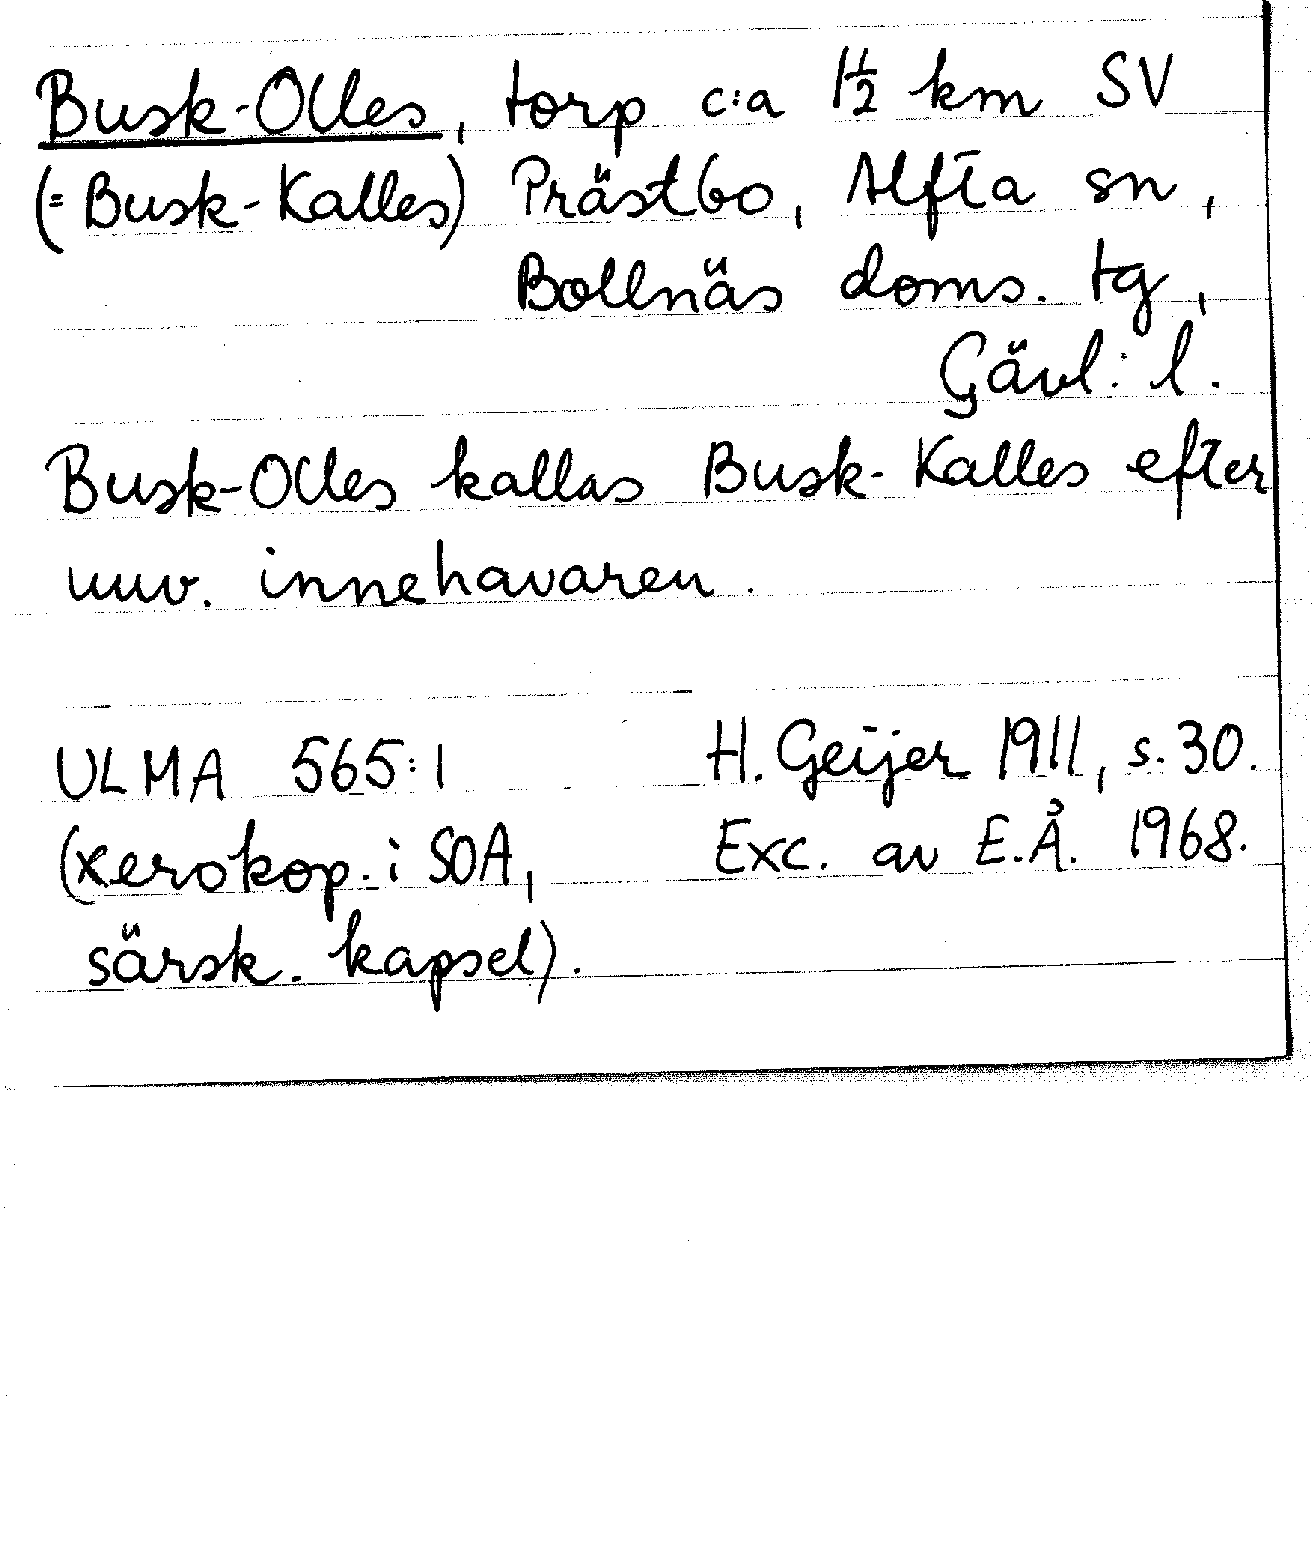 Busk-Olles, torp c:a 1½ km SV
(= Busk-Kalles) Prästbo, Alfta sn,
Bollnäs doms. tg,
Gävl: l.
Busk-Olles kallas Busk-Kalles efter
nuv. innehavaren.
ULMA 565:1 H. Geijer 1911, s. 30.
(xerokop. i SOA, Exc. av E.Å. 1968.
särsk. kapsel).